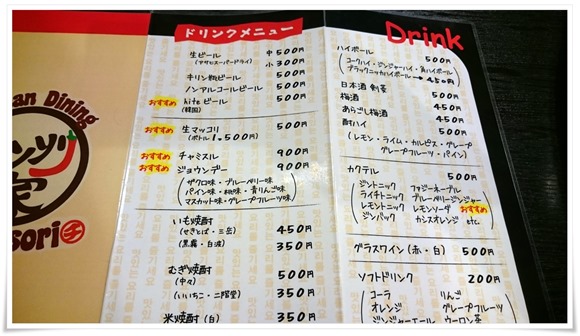 an Dining
sori チ
ドリンクメニュー
生ビール 中 500円
(アサヒスーパードライ) 小 300円
キリン瓶ビール 500円
ノンアルコールビール 500円
おすすめ hiteビール 500円
(韓国)
おすすめ 生マッコリ 500円
(ボトル1,500円)
おすすめ チャミスル 900円
おすすめ ジョウンデー 900円
(ザクロ味・ブルーベリー味
パイン味・桃味・青りんご味
マスカット味・グレープフルーツ味)
いも焼酎
(せきとば・三岳) 450円
(黒霧・白波) 350円
むぎ焼酎
(中々) 500円
(いいちこ・二階堂) 350円
米焼酎(白) 350円
Drink
ハイボール 500円
(コークハイ・ジンジャーハイ・角ハイボール
ブラックニッカハイボール→450円)
日本酒 剣菱 500円
梅酒 450円
あらごし梅酒 450円
酎ハイ 500円
(レモン・ライム・カルピス・グレープ
グレープフルーツ・パイン)
カクテル 500円
ジントニック ファジーネーブル
ライチトニック ブルーベリージンジャー
レモントニック レモンソーダ おすすめ
ジンバック カシスオレンジ etc.
グラスワイン(赤・白) 500円
ソフトドリンク 200円
コーラ りんご
オレンジ グレープフルーツ
ジンジャーエール ウーロン茶